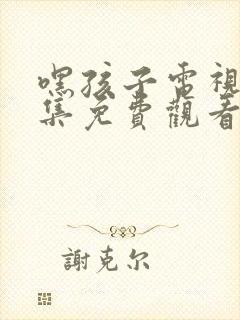 嘿孩子電視
集免費觀看
謝克尔